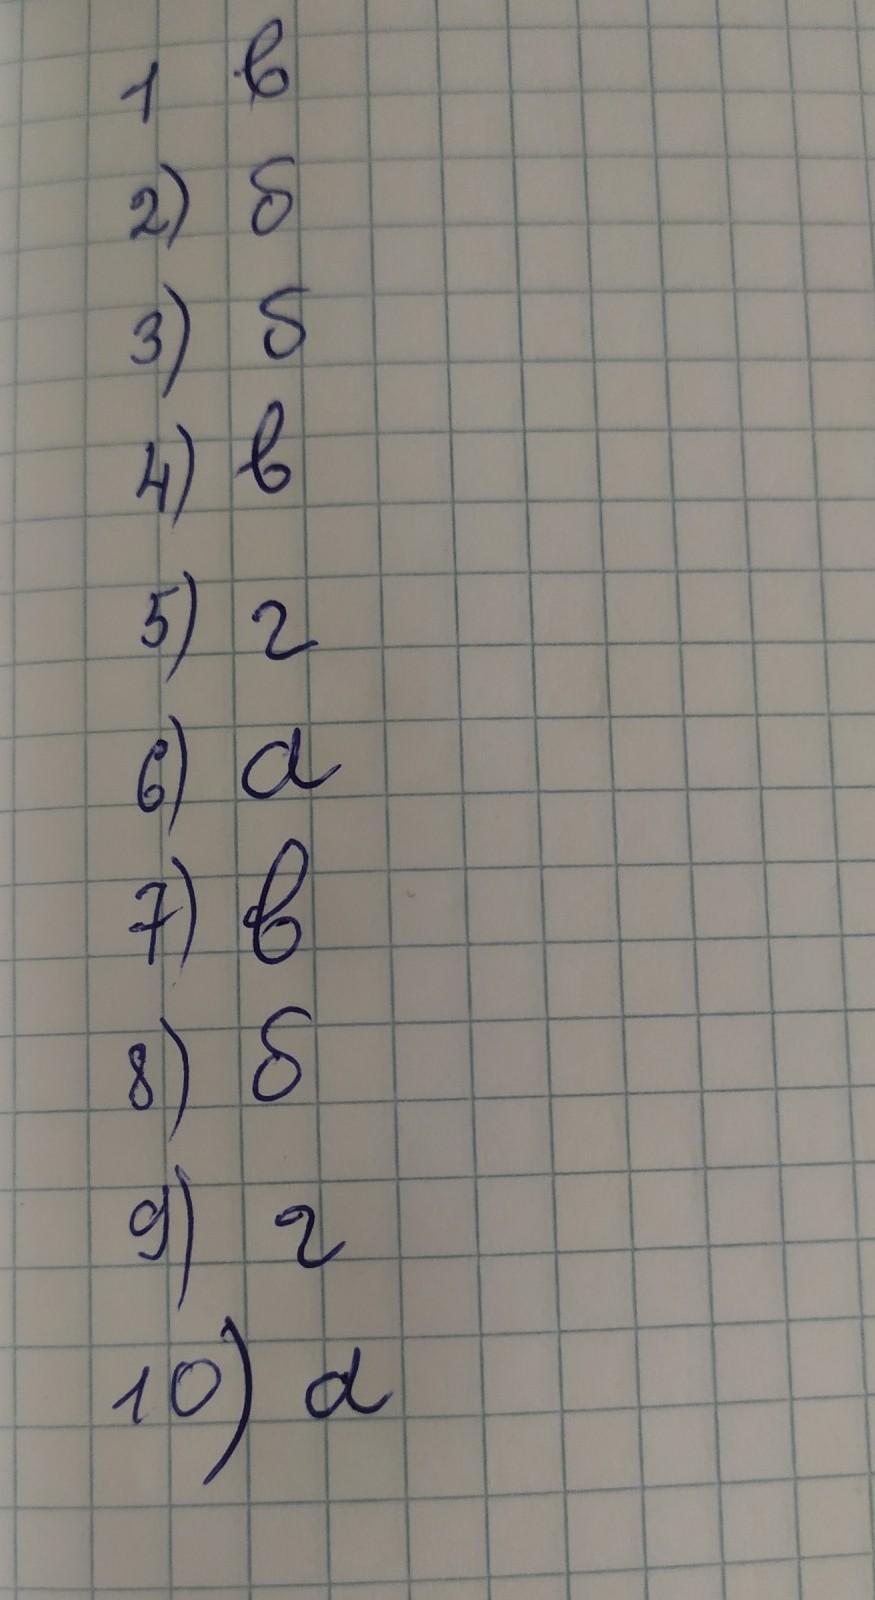 1 в
2) б
3) б
4) в
5) г
6) а
7) в
8) б
9) г
10) а